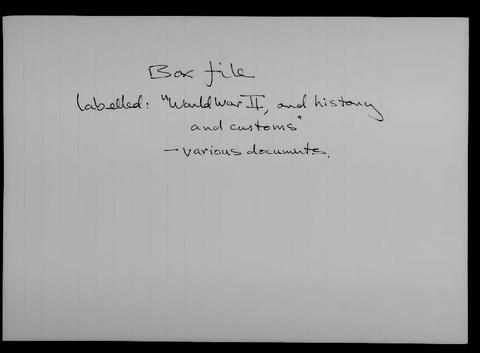 Box file
labelled: "World War II, and history
and customs"
- various documents.